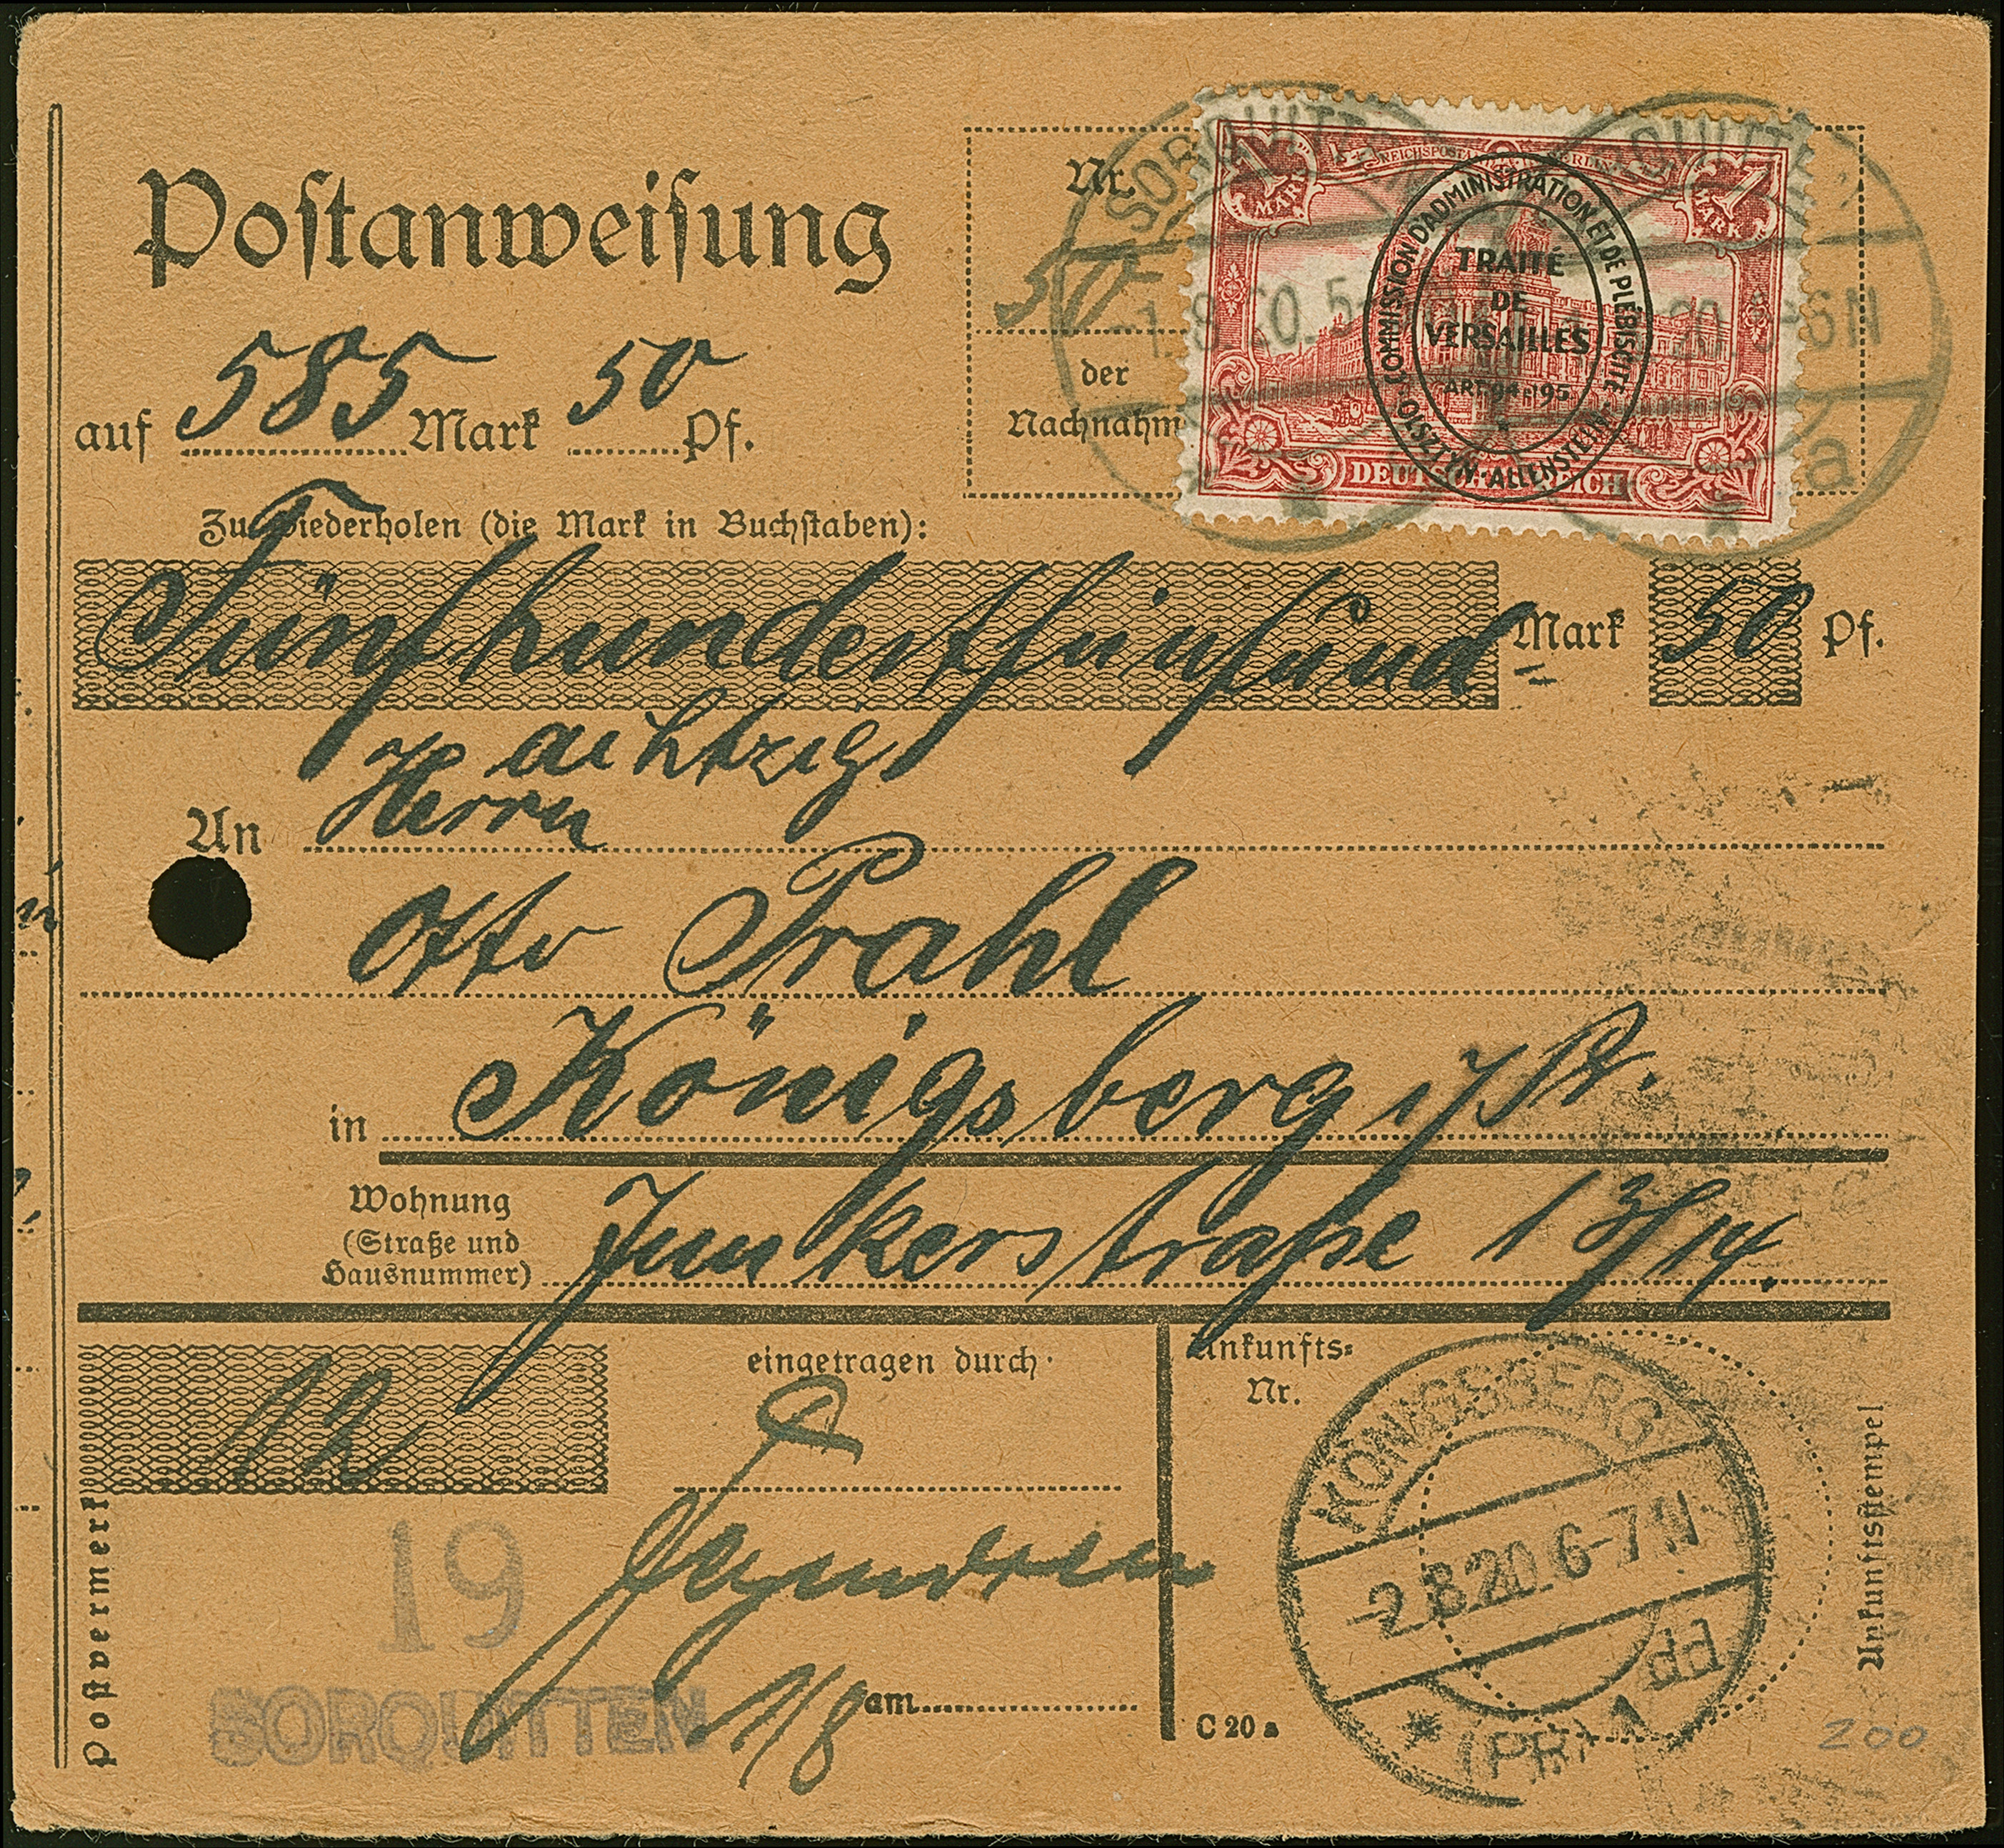 Postanweisung
Nr.
der
Nachnahm
SORQUITTEN
1.8.20. 5-6N
a
1 MARK
REICHSPOSTAMT BERLIN
1 MARK
COMMISSION D'ADMINISTRATION ET DE PLÉBISCITE
OLSZTYN-ALLENSTEIN
TRAITÉ
DE
VERSAILLES
ART. 94 et 95
DEUTSCHES REICH
auf 585 Mark 50 Pf.
Zu wiederholen (die Mark in Buchstaben):
Fünfhundertfünfund= Mark 50 Pf.
achtzig
An Herrn
Otto Prahl
in Königsberg i/Pr.
Wohnung
(Straße und
Hausnummer)
Junkerstraße 13/14.
12
eingetragen durch
Ankunfts=
Nr.
Ankunftsstempel
KÖNIGSBERG
-2.8.20. 6-7N
dd
* (PR) 1
Postvermerk
19
SORQUITTEN
1/8 am
C 20 a
200